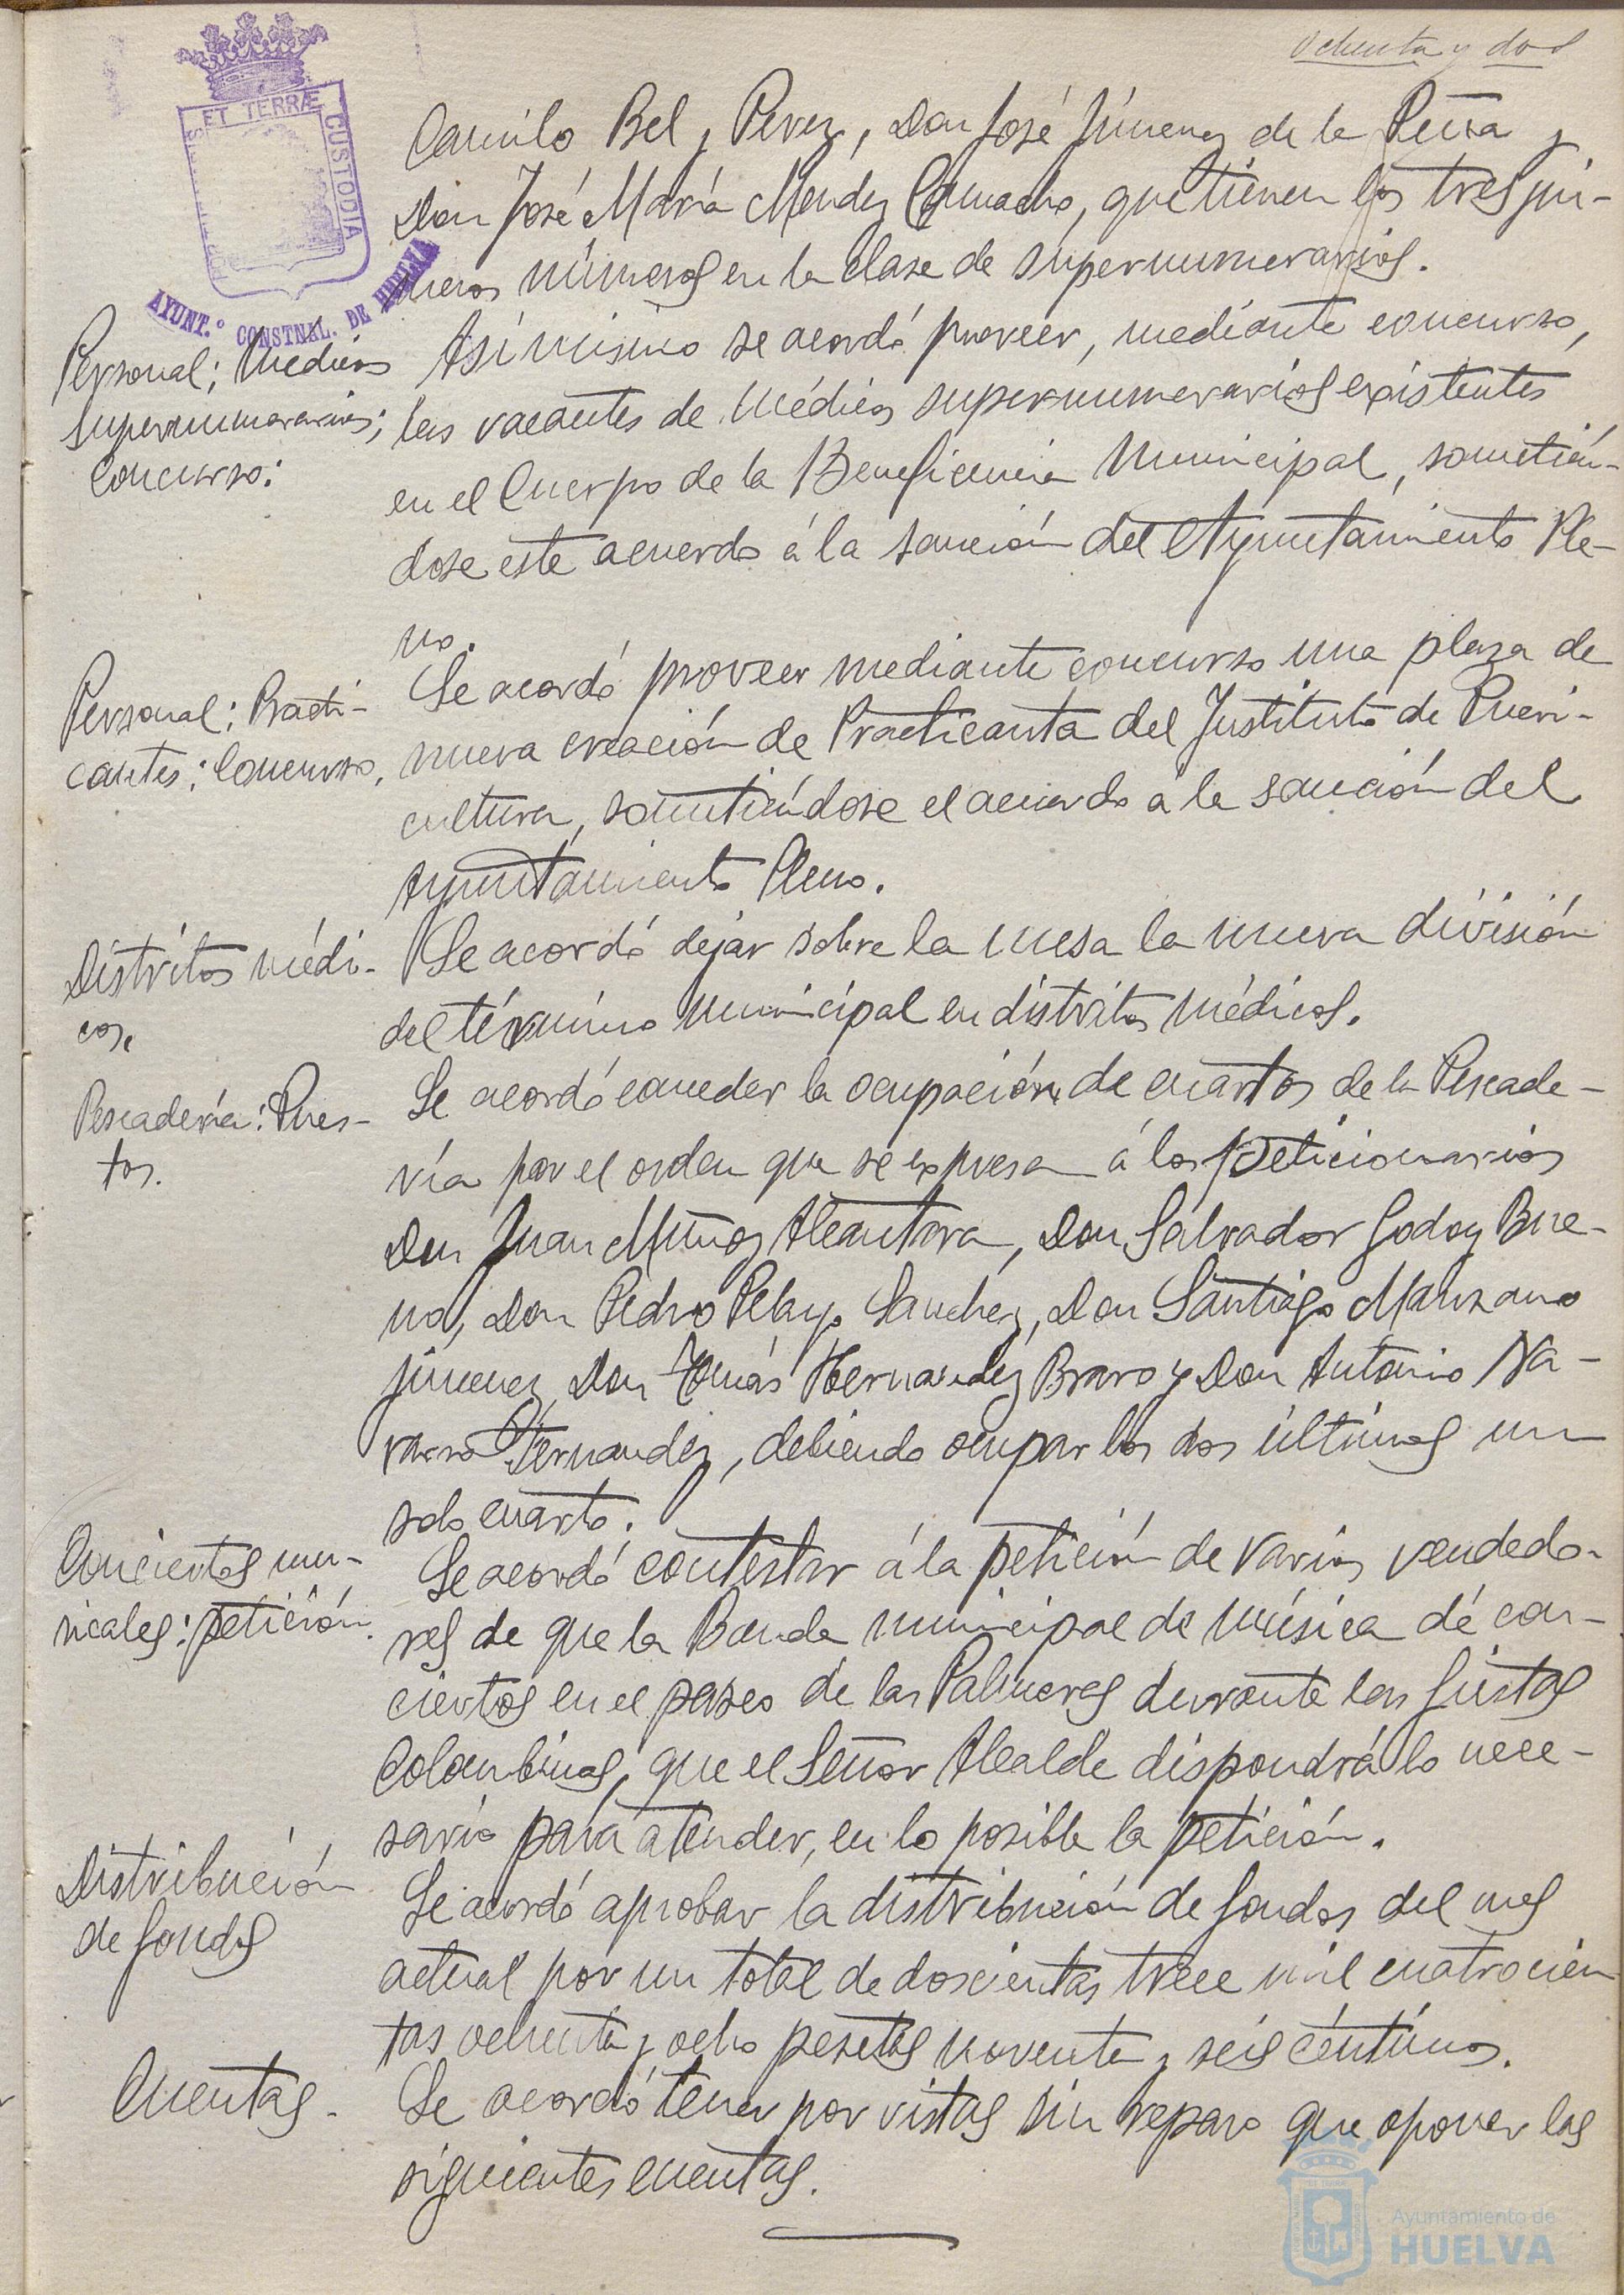 Ochenta y dos
ET TERRÆ
CUSTODIA
AYUNT.º CONSTNAL. DE HUELVA
Camilo Bel y Perez, Don José Jimenez de la Peña y
Don José María Mendez Camacho, que tienen los tres pri-
meros números en la clase de supernumerarios.
Personal; Médicos
supernumerarios;
concurso:
Asímismo se acordó proveer, mediante concurso,
las vacantes de Médicos supernumerarios existentes
en el Cuerpo de la Beneficencia Municipal, sometién-
dose este acuerdo á la sanción del Ayuntamiento Ple-
no.
Personal: Practi-
cantes: Concurso.
Se acordó proveer mediante concurso una plaza de
nueva creación de Practicanta del Instituto de Pueri-
cultura, sometiéndose el acuerdo á la sanción del
Ayuntamiento Pleno.
Distritos médi-
cos.
Se acordó dejar sobre la mesa la nueva división
del término municipal en distritos médicos.
Pescadería: Pues-
tos.
Se acordó conceder la ocupación de cuartos de la Pescade-
ría por el orden que se expresa á los peticionarios
Don Juan Muñoz Alcantara, Don Salvador Godoy Bue-
no, Don Pedro Pelayo Sanchez, Don Santiago Manzano
Jimenez, Don Tomás Hernandez Bravo y Don Antonio Na-
varro Fernandez, debiendo ocupar los dos últimos un
solo cuarto.
Conciertos mu-
sicales: petición.
Se acordó contestar á la petición de varios vendedo-
res de que la Banda municipal de música dé con-
ciertos en el paseo de las Palmeras durante las fiestas
Colombinas, que el Señor Alcalde dispondrá lo nece-
sario para atender, en lo posible la petición.
Distribución
de fondos
Se acordó aprobar la distribución de fondos del mes
actual por un total de doscientas trece mil cuatrocien
tas ochenta y ocho pesetas noventa y seis céntimos.
Cuentas.
Se acordó tener por vistas sin reparo que oponer las
siguientes cuentas.
Ayuntamiento de
HUELVA